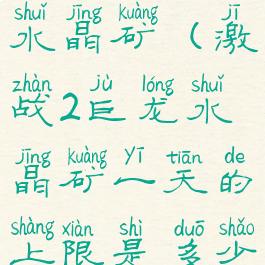 shuǐ jīng kuàng jī
水晶矿(激
zhàn jù lóng shuǐ
战2巨龙水
jīng kuàng yī tiān de
晶矿一天的
shàng xiàn shì duō shǎo
上限是多少